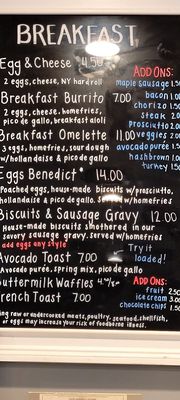 BREAKFAST
Egg & Cheese 4.50
2 eggs, cheese, NY hard roll
Breakfast Burrito 7.00
2 eggs, cheese, homefries,
pico de gallo, breakfast aioli
Breakfast Omelette 11.00
3 eggs, homefries, sourdough
w/hollandaise & pico de gallo
Eggs Benedict* 14.00
Poached eggs, house-made biscuits w/prosciutto,
hollandaise & pico de gallo. Served w/homefries
Biscuits & Sausage Gravy 12.00
House-made biscuits smothered in our
savory sausage gravy. Served w/homefries
add eggs any style
Avocado Toast 7.00
Avocado purée, spring mix, pico de gallo
Buttermilk Waffles
French Toast 7.00
ADD ONS:
maple sausage
bacon
chorizo
steak
prosciutto
veggies
avocado purée
hashbrown
turkey
Try it
loaded!
ADD ONS:
fruit
ice cream
chocolate chips
raw or undercooked meats, poultry, seafood, shellfish,
or eggs may increase your risk of foodborne illness.